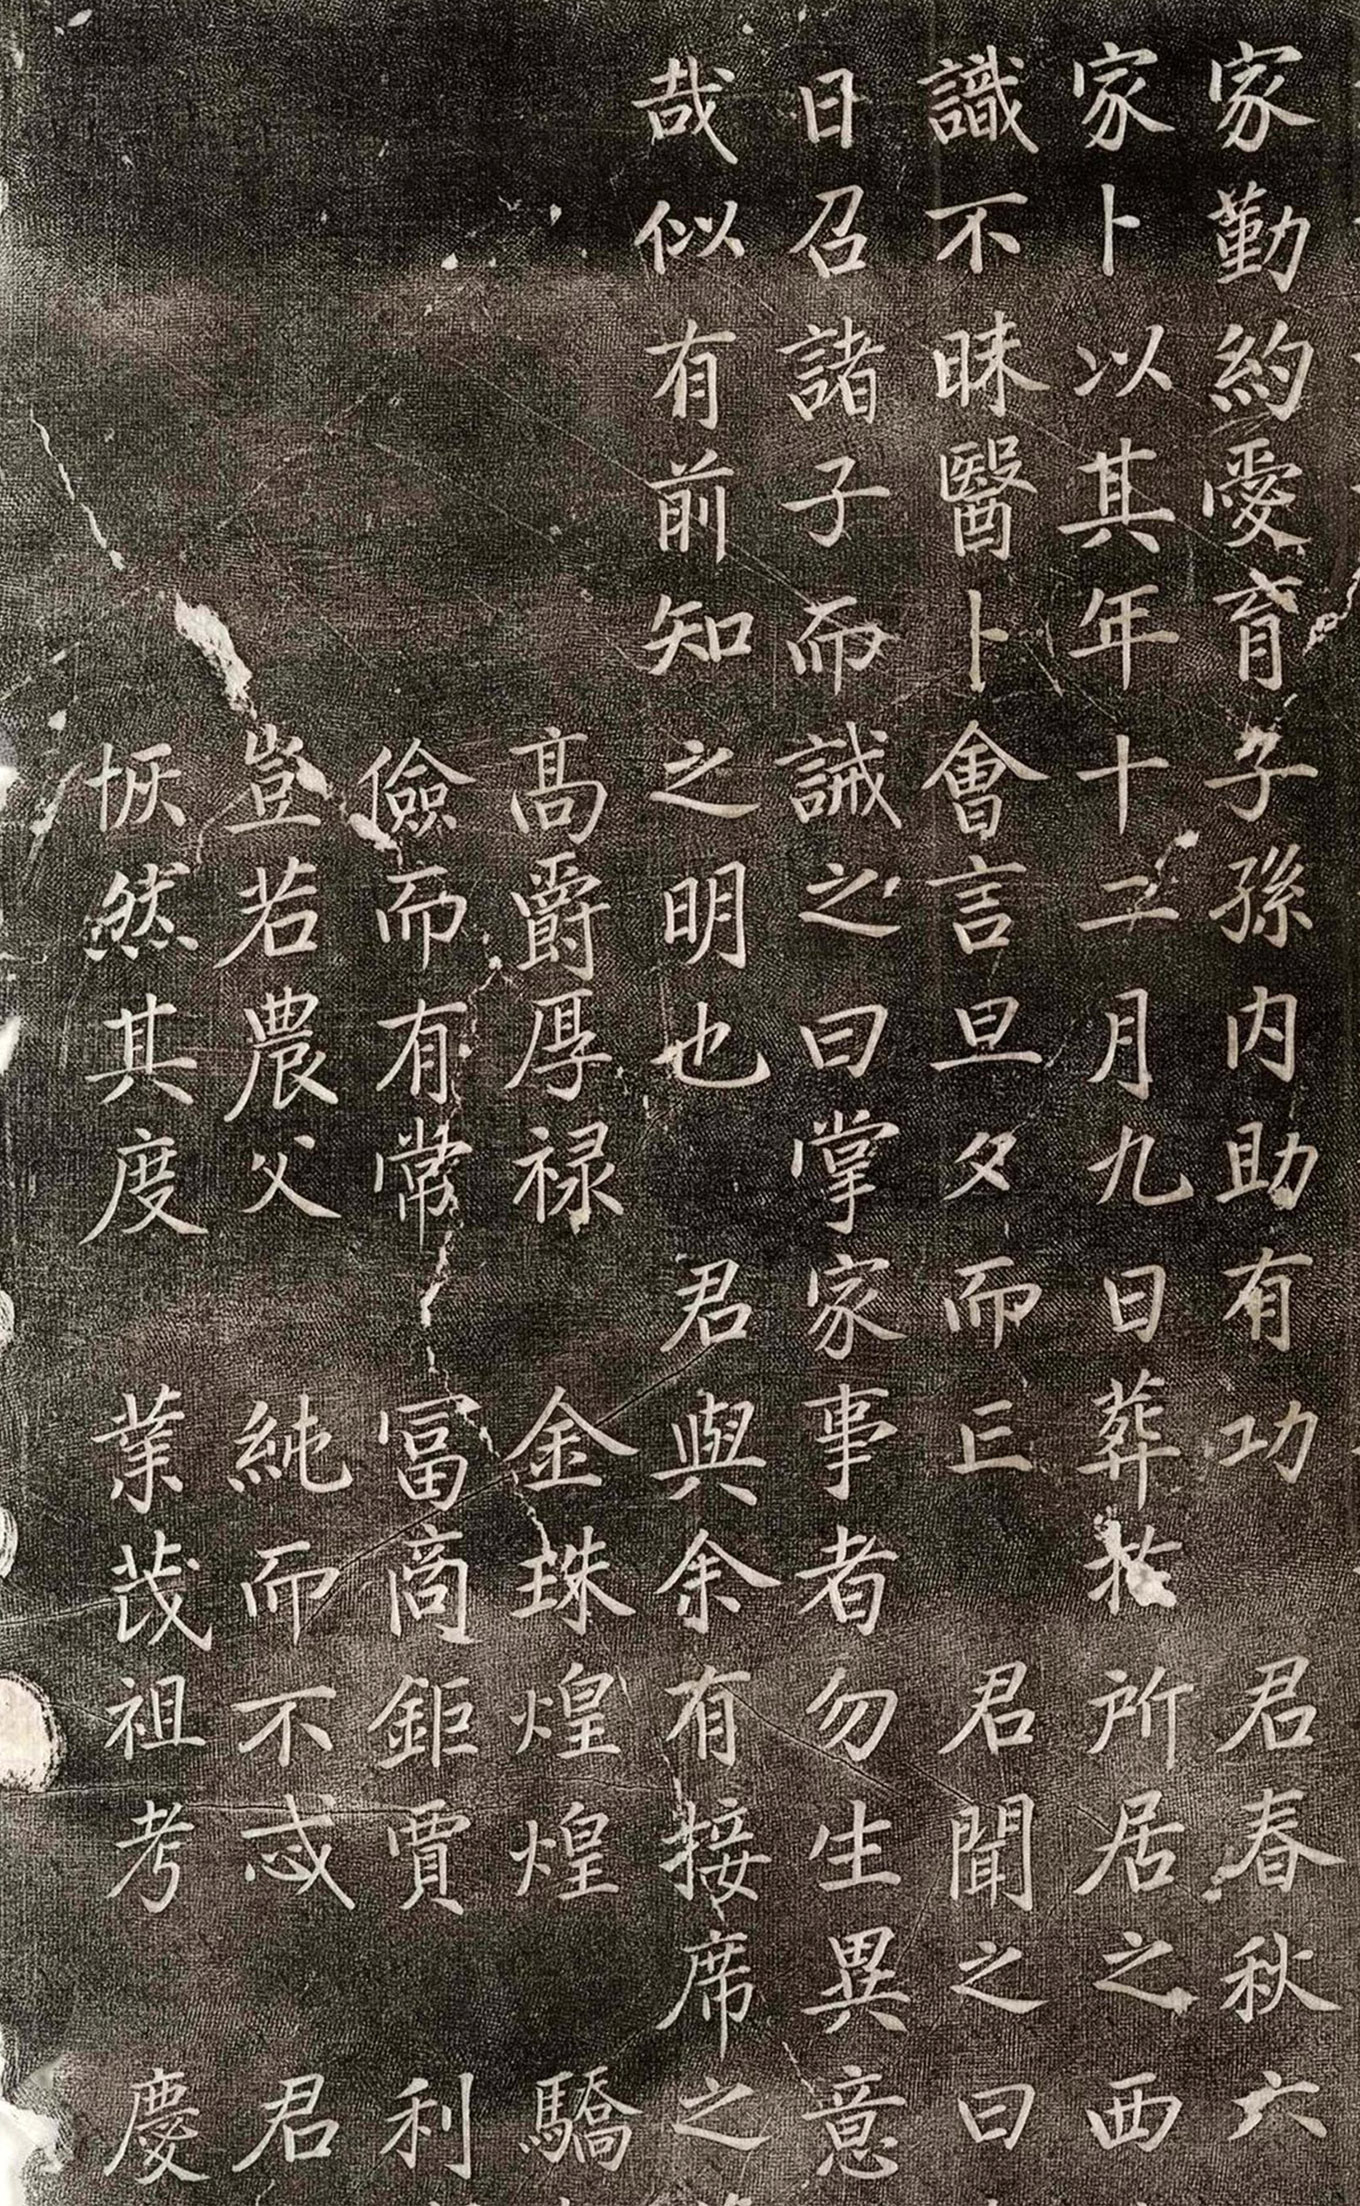 家勤約愛育子孫内助有功　君春秋六
家卜以其年十二月九日葬於　所居之西
識不昧醫卜會言旦夕而亡　君聞之曰
日召諸子而誡之曰掌家事者勿生異意
哉似有前知之明也　君與余有接席之
高爵厚禄　金珠煌煌　驕
儉而有常　富商鉅賈　利
豈若農父　純而不忒　君
恢然其度　業茂祖考　慶